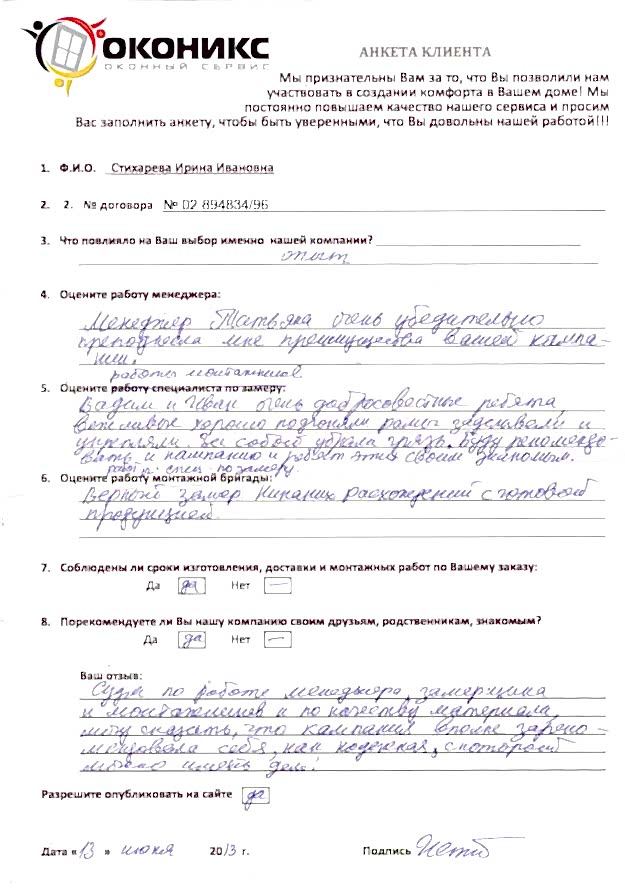 ОКОНИКС
ОКОННЫЙ СЕРВИС
АНКЕТА КЛИЕНТА
Мы признательны Вам за то, что Вы позволили нам
участвовать в создании комфорта в Вашем доме! Мы
постоянно повышаем качество нашего сервиса и просим
Вас заполнить анкету, чтобы быть уверенными, что Вы довольны нашей работой!!!
1. Ф.И.О. Стихарева Ирина Ивановна
2. 2. № договора № 02 894834/96
3. Что повлияло на Ваш выбор именно нашей компании?
опыт
4. Оцените работу менеджера:
Менеджер Татьяна очень убедительно
преподнесла мне преимущества вашей кампа-
нии.
работы монтажников
5. Оцените работу специалиста по замеру:
Вадим и Иван очень добросовестные ребята,
вежливые хорошо подгоняли рамы задували и
укрепляли. За собой убрали грязь. Буду рекоменде-
вать и кампанию и ребят этих своим знакомым.
спец. по замеру.
6. Оцените работу монтажной бригады:
Верный замер Никаких расхождений с готовой
продукцией.
7. Соблюдены ли сроки изготовления, доставки и монтажных работ по Вашему заказу:
Да да Нет —
8. Порекомендуете ли Вы нашу компанию своим друзьям, родственникам, знакомым?
Да да Нет —
Ваш отзыв:
Судя по работе менеджера, замерщика
и монтажников и по качеству материала,
могу сказать, что кампания вполне зареко-
мендовала себя, как надежная, с которой
можно иметь дело!
Разрешите опубликовать на сайте да
Дата «13» июня 2013 г. Подпись